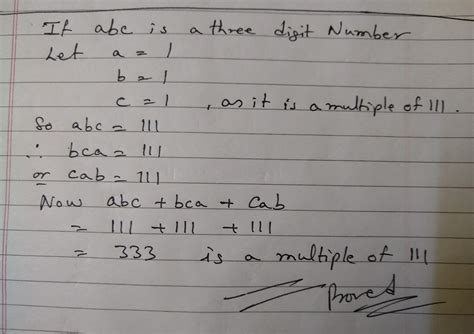 If abc is a three digit Number
Let a = 1
b = 1
c = 1 , as it is a multiple of 111.
So abc = 111
∴ bca = 111
or cab = 111
Now abc + bca + cab
= 111 + 111 + 111
= 333 is a multiple of 111
Proved